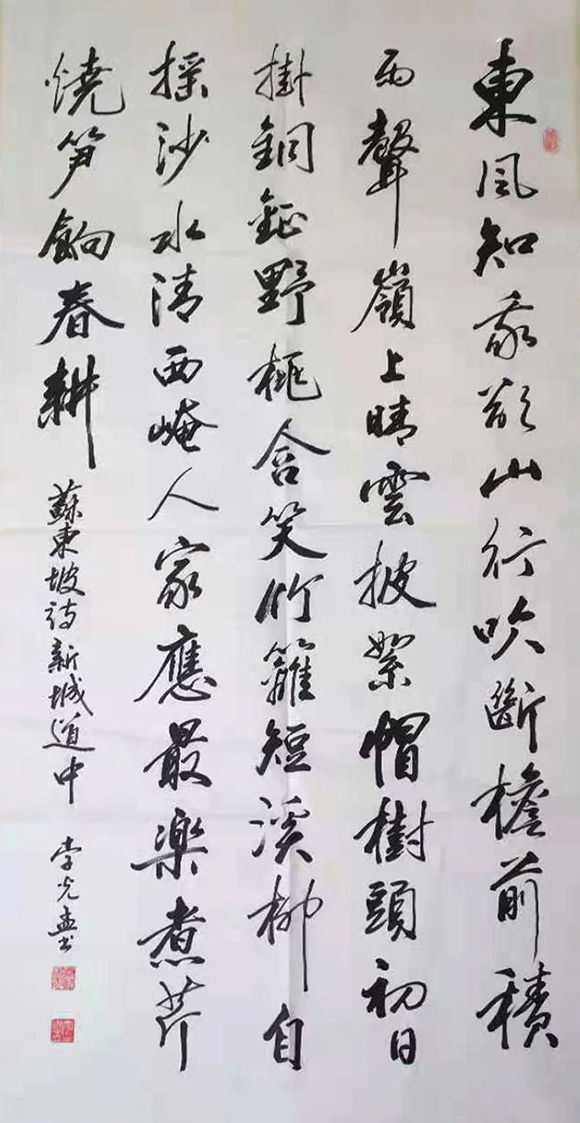 東風知我欲山行吹斷檐前積
雨聲嶺上晴雲披絮帽樹頭初日
掛銅鉦野桃含笑竹籬短溪柳自
搖沙水清西崦人家應最楽煮芹
燒笋餉春耕
蘇東坡詩新城道中
李光